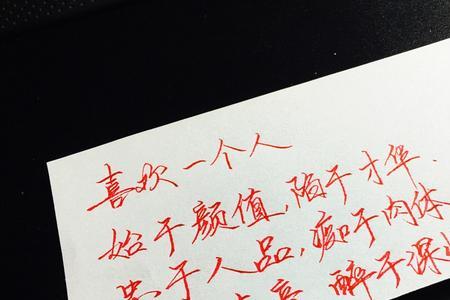 喜欢一个人
始于颜值,陷于才华.
忠于人品,痴于肉体
醉于深